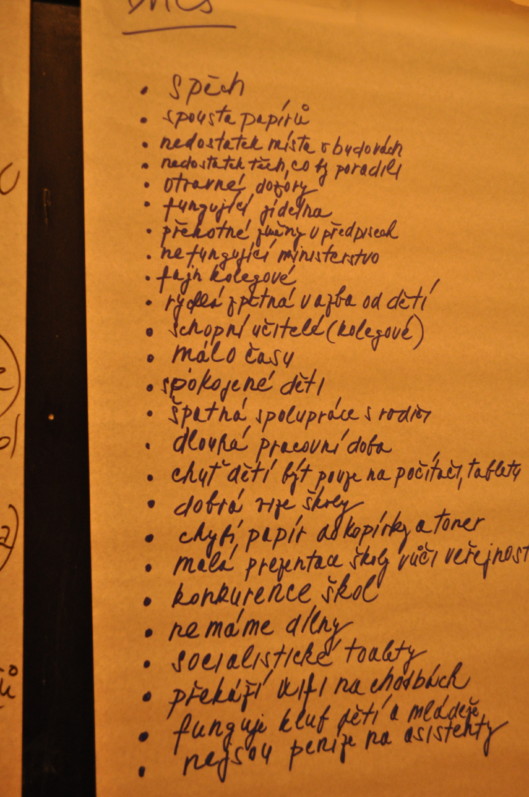 DNES
• spěch
• spousta papírů
• nedostatek místa v budovách
• nedostatek těch, co by poradili
• otravné dozory
• fungující jídelna
• překotné změny v předpisech
• nefungující ministerstvo
• fajn kolegové
• rychlá zpětná vazba od dětí
• schopní učitelé (kolegové)
• málo času
• spokojené děti
• špatná spolupráce s rodiči
• dlouhá pracovní doba
• chuť dětí být pouze na počítači, tablety
• dobrá vize školy
• chybí papír do kopírky a toner
• malá prezentace školy vůči veřejnost
• konkurence škol
• nemáme dílny
• socialistické toalety
• překáží wifi na chodbách
• funguje klub dětí a mládeže
• nejsou peníze na asistenty